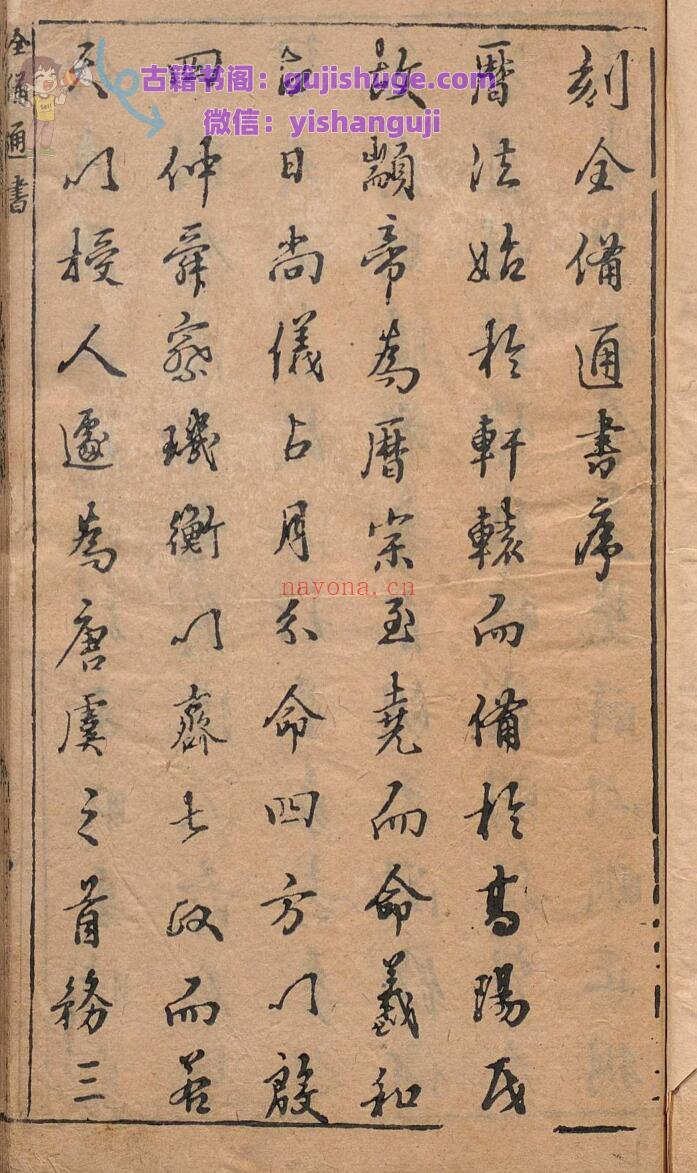 古籍书阁：gujishuge.com
微信：yishanguji
刻全備通書序
曆法始於軒轅而備於髙陽氏
故顓帝為曆宗至堯而命羲和
占日尚儀占月分命四方以殷
四仲舜察璣衡以齊七政而若
天以授人遽為唐虞之首務三
全備通書
nayona.cn